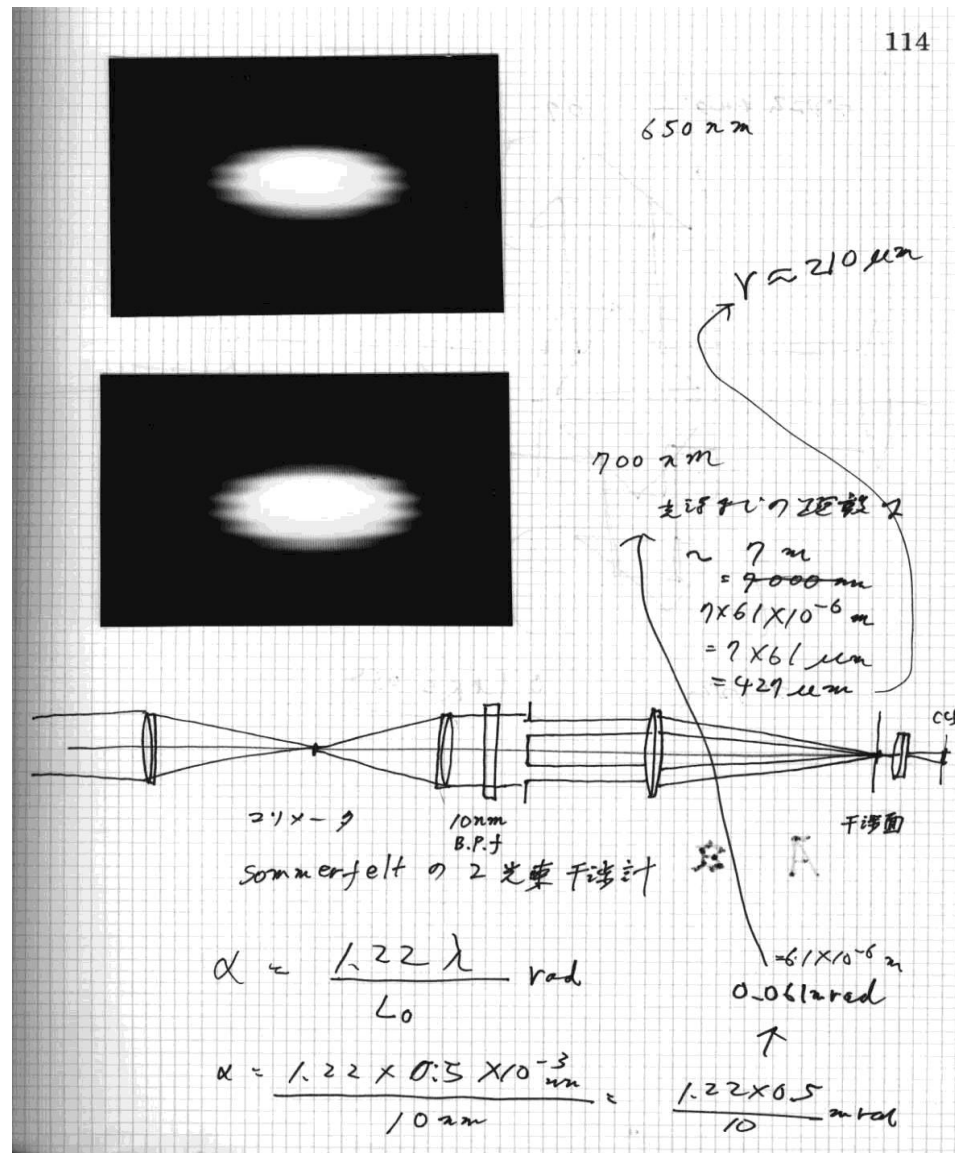 114
650 nm
γ ≈ 210 μm
700 nm
光源までの距離
~ 7 m
= 7000 mm
7×61×10⁻⁶ m
= 7×61 μm
= 427 μm
CCD
コリメータ
10nm
B.P.f
干渉面
Sommerfelt の 2 光束干渉計
α = 1.22 λ / L₀ rad
=61×10⁻⁶ m
0.061mrad
α = 1.22 × 0.5 ×10⁻³ mm / 10 mm = 1.22×0.5 / 10 mrad